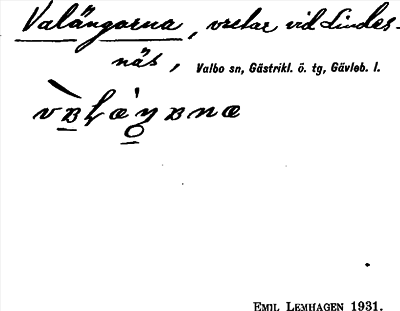 Valängorna, vretar vid Lindes-
näs, Valbo sn, Gästrikl. ö. tg, Gävleb. l.
EMIL LEMHAGEN 1931.